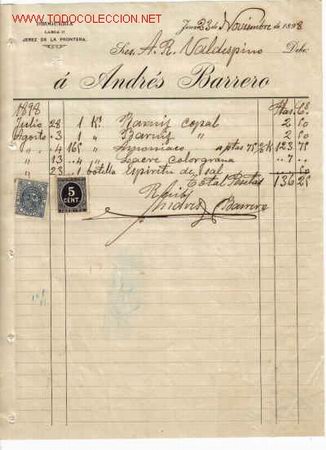 todocoleccion.net
LARGA
JEREZ DE LA FRONTERA
Jerez 23 de Noviembre de 1898
Sres. A. R. Valdespino Debe
á Andrés Barrero
1898 Ptas Cs
Julio 28 1 K. Barniz copal 2 50
Agosto 3 1 " Barniz " 2 50
" 4 165 " Amoniaco a ptas 75 % K. 123 75
" 13 4 " Lacre Colorgrana 7 "
" 23 1 botella Espiritu de sal " 50
Total Pesetas 136 25
5
CENT.
Recibí
Andres Barrero